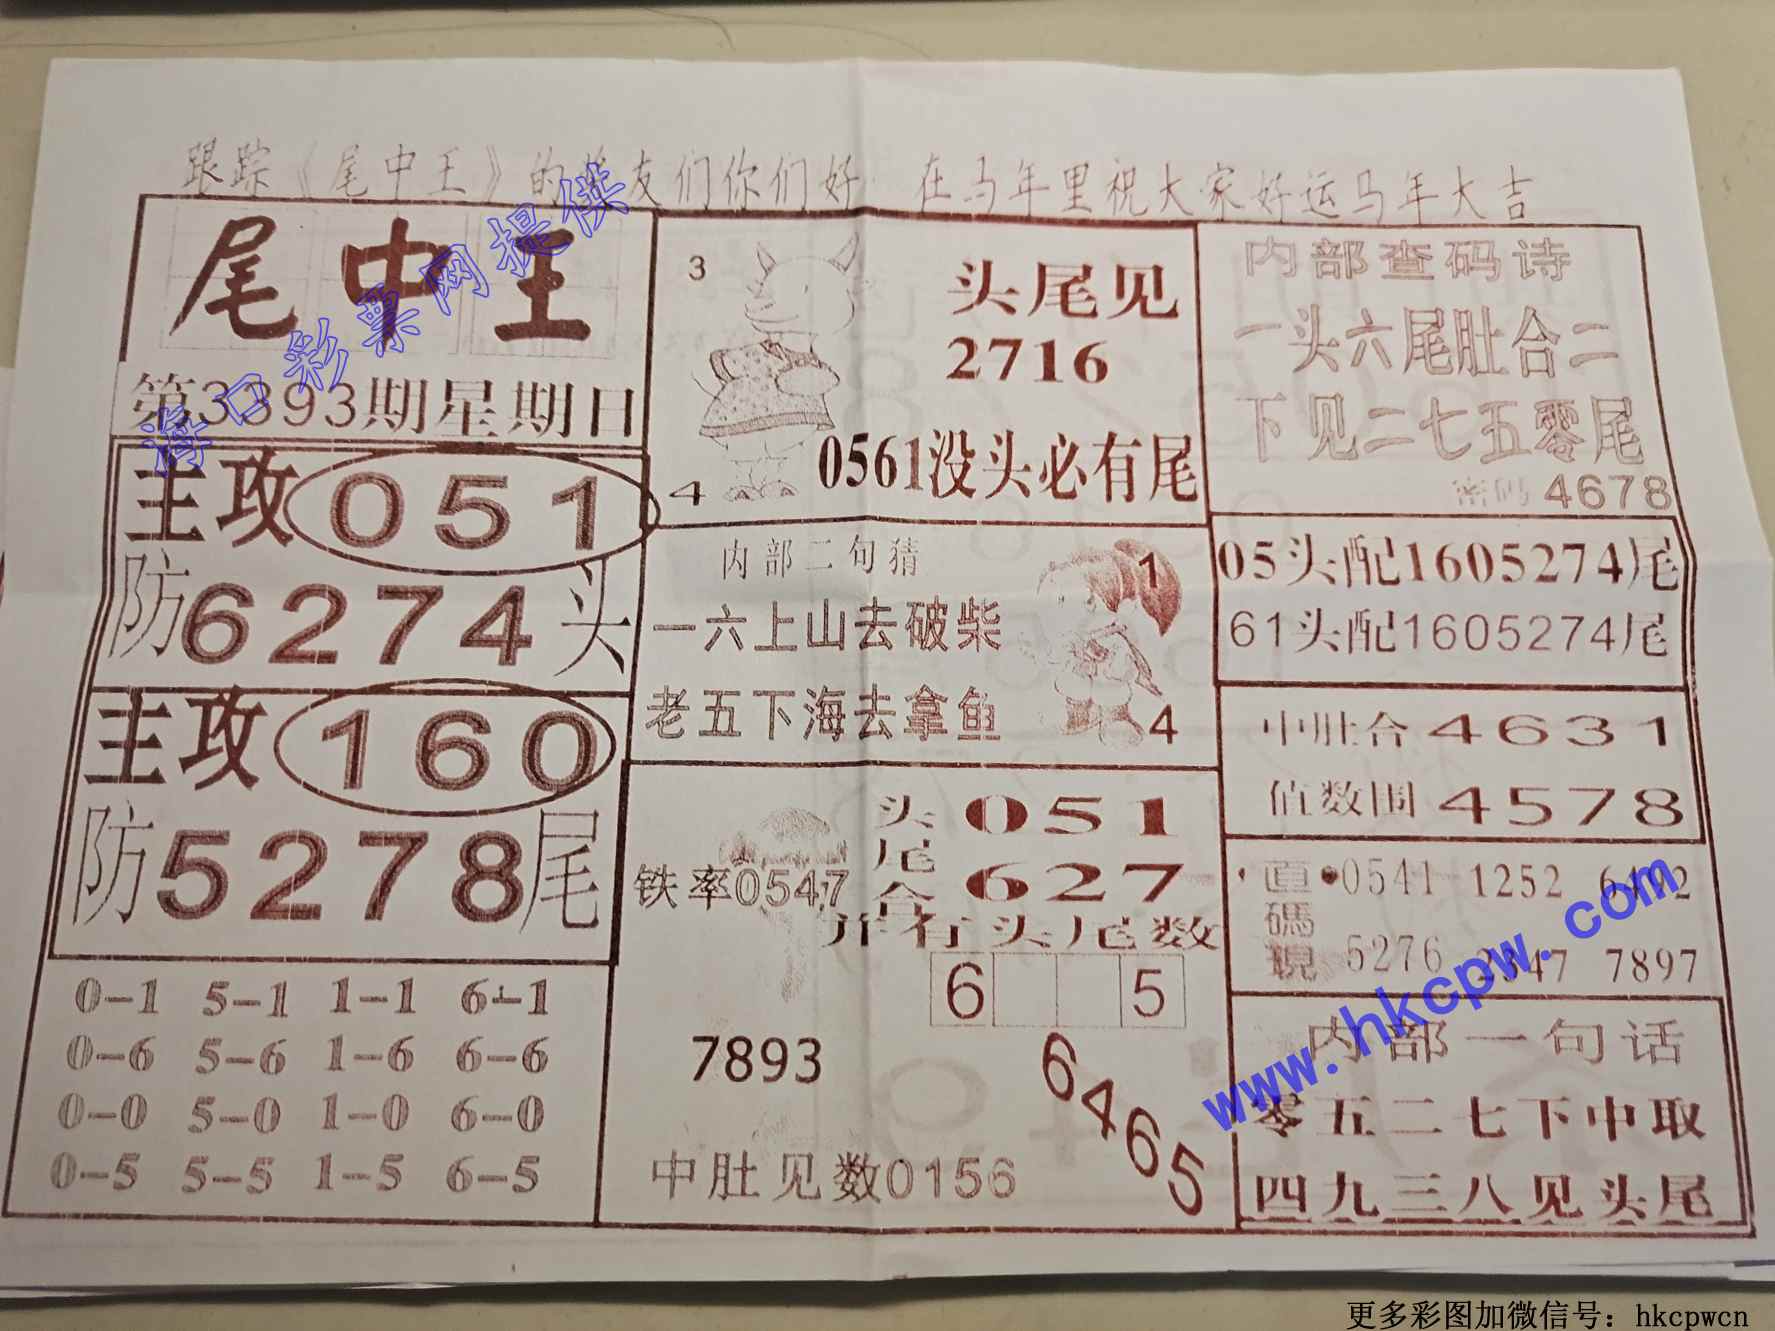 跟踪《尾中王》的彩友们你们好 在马年里祝大家好运马年大吉
尾中王
第3393期星期日
主攻051
防6274头
主攻160
防5278尾
0-1 5-1 1-1 6-1
0-6 5-6 1-6 6-6
0-0 5-0 1-0 6-0
0-5 5-5 1-5 6-5
3
头尾见
2716
0561没头必有尾
4
内部二句猜
1
一六上山去破柴
老五下海去拿鱼
4
头尾合
051
627
铁率0547
并有头尾数
6 5
7893
6465
中肚见数0156
内部查码诗
一头六尾肚合二
下见二七五零尾
密码4678
05头配1605274尾
61头配1605274尾
中肚合4631
值数围4578
直碼現
0541 1252 6492
5276 2347 7897
内部一句话
零五二七下中取
四九三八见头尾
海口彩票网提供
www.hkcpw.com
更多彩图加微信号：hkcpwcn